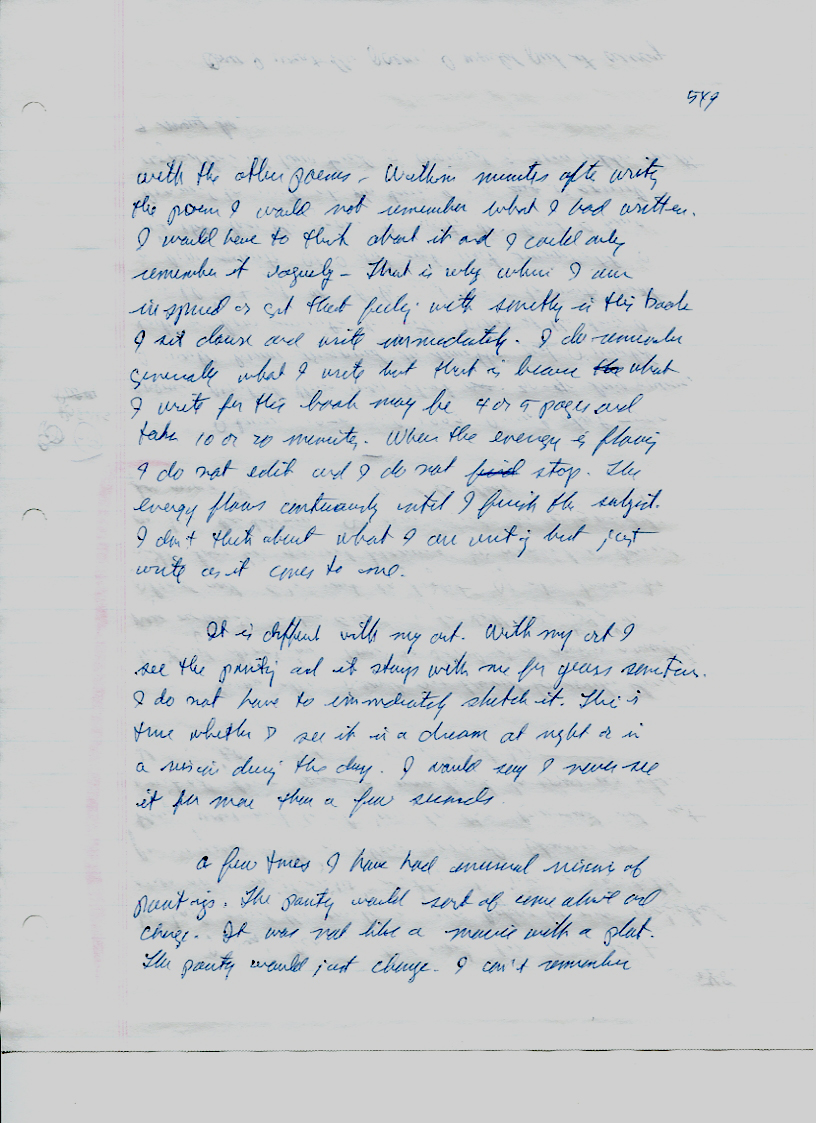 549
with the other poems - Within minutes after writing
the poem I would not remember what I had written.
I would have to think about it and I could only
remember it vaguely - That is why when I am
inspired or get that feeling with something in this book
I sit down and write immediately. I do remember
generally what I write but that is because the what
I write for this book may be 4 or 5 pages and
take 10 or 20 minutes. When the energy is flowing
I do not edit and I do not find stop. The
energy flows continuously until I finish the subject.
I don't think about what I am writing but just
write as it comes to me.
It is different with my art. With my art I
see the painting and it stays with me for years sometimes.
I do not have to immediately sketch it. This is
true whether I see it in a dream at night or in
a vision during the day. I would say I never see
it for more than a few seconds.
A few times I have had unusual visions of
paintings. The painting would sort of come alive and
change. It was not like a movie with a plot.
The painting would just change. I can't remember